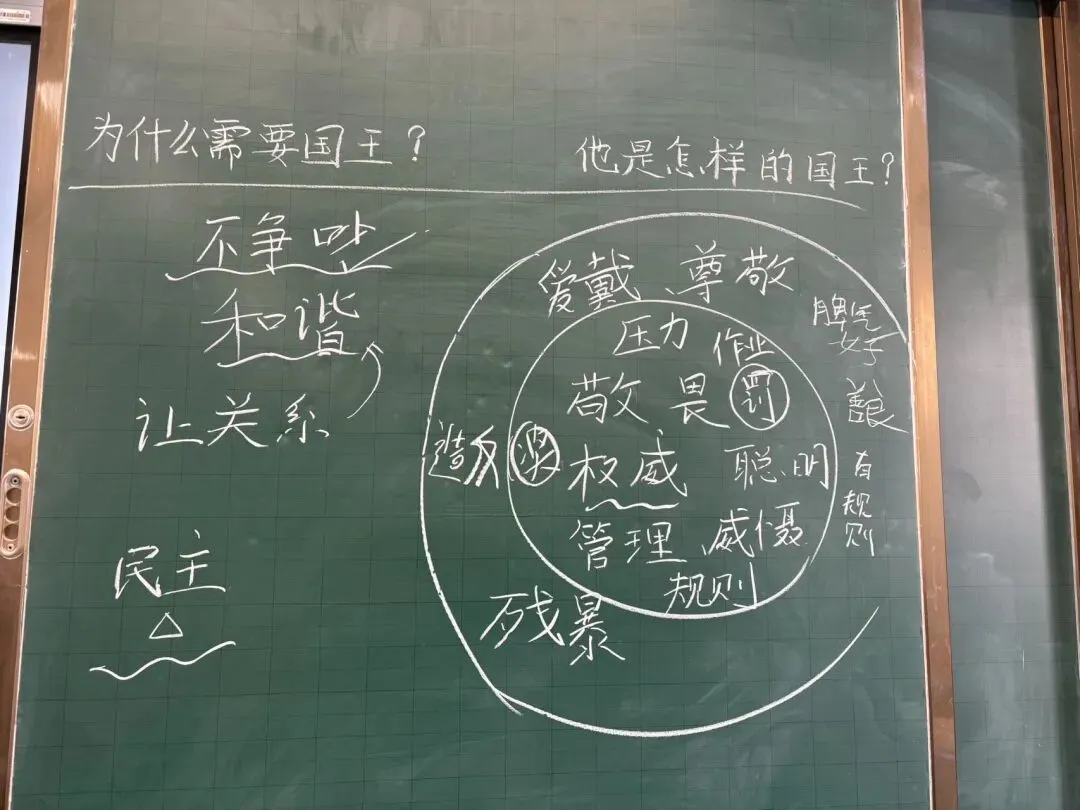 为什么需要国王？
他是怎样的国王？
不争吵
和谐
让关系
民主
爱戴、尊敬
脾气
好
善良
有
规
则
压力
作业
敬畏
罚
造反
权威
聪明
管理
威慑
规则
残暴